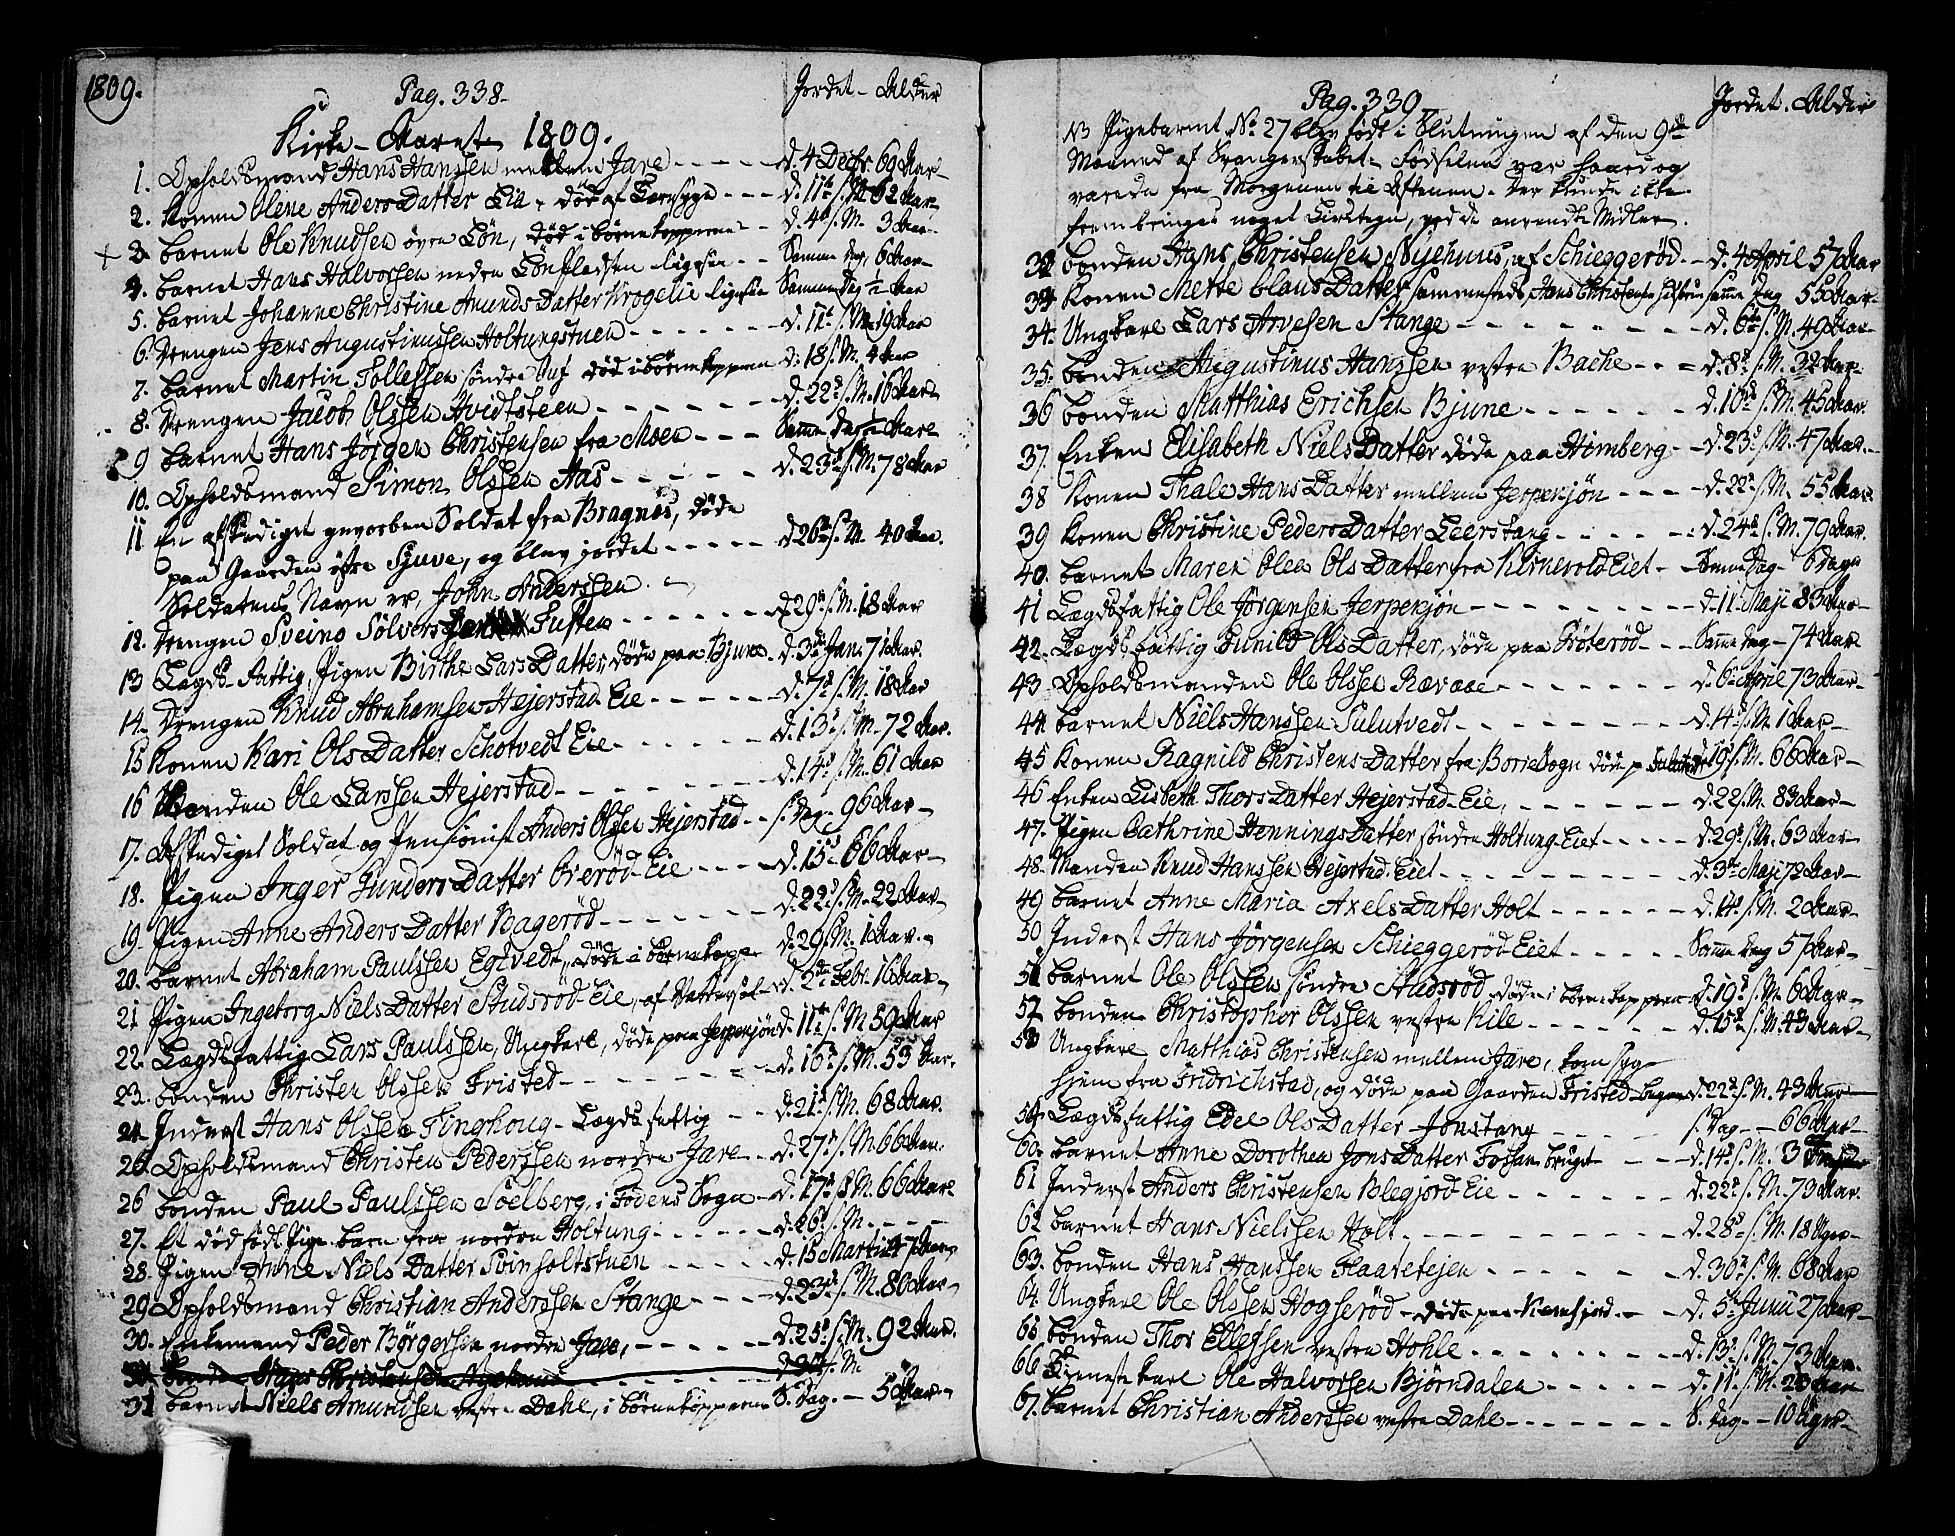 1809.
Pag. 338.
Jordet - Alder
Kirke-Aaret 1809.
1. Opholdsmand Hans Hanssen mellem Jare - - - - d. 4 Decbr. 69 Aar-
2. Konen Olene Anders Datter Lia, død af - - - d. 11te s. M. 62 Aar
3. barnet Ole Knudsen øvre Løn, død i børnekopperne - d. 4 s. M. 3 Aar-
4. barnet Hans Halvorsen nedre Lønpladsen ligesaa - - Samme dag, 6 Aar-
5. barnet Johanne Christine Amunds Datter Krogelie ligesaa Samme dag ½ Aar
6. Drengen Jens Augustinussen Holtungstuen - - - - - - d. 11te s. M. 19 Aar
7. barnet Martin Tollefsen søndre Auf død i børnekopperne d. 18 s. M. 4 Aar
8. Drengen Jacob Olssen Hvidtsteen - - - - - - - d. 22d s. M. 16 Aar
9 barnet Hans Jørgen Christensen fra Moen - - - Samme dag ½ Aar
10. Opholdsmand Simon Olssen Aas - - - - - - d. 23d s. M. 78 Aar
11 En afskediget gevorben Soldat fra Bragnes, døde
paa Gaarden øfre Gjuve, og blev jordet - - - - - d. 26de s. M. 40 Aar.
Soldatens Navn er, John Anderssen.
12. Drengen Sveino Sølvers Tuften - - - - - - d. 29d s. M. 18 Aar
13 Lægds-Fattig, Pigen Birthe Lars Datter, døde paa Bjune - d. 3de Jan: 71 Aar.
14. Drengen Knud Abrahamsen Hejerstad Eie - - - - d. 7d s. M. 18 Aar
15 Konen Kari Ols Datter Schotvedt Eie - - - - - - d. 13d s. M. 72 Aar.
16 Bonden Ole Larssen Hejerstad - - - - - - - - d. 14d s. M. 61 Aar
17. Afskediget Soldat og Pensionist Anders Olssen Hejerstad - - s. dag - 96 Aar-
18. Pigen Inger Gunders Datter Orerød-Eie - - - - d. 15d 66 Aar-
19. Pigen Anne Anders Datter Bagerød - - - - - - d. 22d s. M. 22 Aar-
20. barnet Abraham Paulssen Egtvedt, døde i børnekopper d. 29 s. M. 1 Aar.-
21 Pigen Ingeborg Niels Datter Studsrød-Eie, af Vattersot - d. 2de Febr. 16 Aar-
22. Lægdsfattig Lars Paulssen, Ungkarl, døde paa Jerpensjøn d. 11te s. M. 59 Aar
23. bonden Christen Olssen Fristed - - - - - - - d. 16d s. M. 53 Aar.
24 Inderst Hans Olssen Tinghoug - Lægdsfattig - - d. 21d s. M. 68 Aar.
25. Opholdsmand Christen Pederssen nordre Jare - - d. 27d s. M. 66 Aar.
26 bonden Paul Paulssen Soelberg, i Fodens Sogn - d. 17d s. M. 66 Aar
27. Et dødfødt Pige barn fra nordre Holtung - - - - - d. 26d s. M. - - -
28. Pigen Anne Niels Datter Svinholtstuen - - - - - d. 15 Martii 47 Aar
29 Opholdsmand Christian Anderssen Stange - - - - d. 23d s. M. 80 Aar-
30. Enkemand Peder Børgersen nordre Jare, - - - - - d. 25d s. M. 92 Aar.
31. Bonden Hans Christensen Nyehuus - - - - - - - s. M.
31 barnet Niels Amundsen vestre Dahl, i børnekopperne S. dag. - 5 Aar-
Pag. 339
Jordet. Alder
NB Pigebarnet No. 27 blev født i Slutningen af den 9de
Maaned af Svangerskabet. Fødselen var haard og
varede fra Morgenen til Aftenen. Der kunde ikke
frembringes noget Livstegn, ved de anvendte Midler.
32 bonden Hans Christensen Nyehuus, af Schieggerød - d. 4 April 57 Aar
33. Konen Mette Claus Datter sammesteds, Hans Christensens samme dag 55 Aar-
34. Ungkarl Lars Arvesen Stange - - - - - - - - d. 6te s. M. 49 Aar-
35. bonden Augustinus Hanssen vestre Bache - - - d. 8d s. M. 32 Aar-
36 bonden Matthias Erichsen Bjune - - - - - - d. 16d s. M. 45 Aar.
37. Enken Elisabeth Niels Datter døde paa Himberg - - d. 23d s. M. 47 Aar.-
38 Konen Thale Hans Datter mellem Jerpensjøn - - - d. 22d s. M. 55 Aar
39 Konen Christine Peders Datter Leerstang - - - - - d. 24d s. M. 79 Aar.
40. barnet Maren Olea Ols Datter fra Kirnevold Eiet - - Samme Dag - 6 dage
41 Lægdsfattig Ole Jørgensen Jerpensjøn - - - - - - - - d. 11 Maji 83 Aar-
42. Lægdsfattig Gunild Ols Datter, døde paa Frøterød - - - Samme dag - 74 Aar-
43 Opholdsmanden Ole Olssen Rævaae - - - - - - - d. 6te April 73 Aar-
44 barnet Niels Hanssen Sulutvedt - - - - - - - - d. 14d s. M. 1 Aar-
45 Konen Ragnild Christens Datter fra Borre Sogn døde p. d. 19d s. M. 66 Aar-
46 Enken Lisbeth Thors Datter Hejerstad-Eie, - - - - - - d. 22 s. M. 83 Aar-
47. Pigen Cathrine Hennings Datter søndre Holtung-Eiet - - - - - d. 29d s. M. 63 Aar-
48. Manden Knud Hanssen Hejerstad-Eiet - - - - - - - - d. 3de Maji 72 Aar-
49 barnet Anne Maria Axels Datter Holt - - - - - - d. 14d s. M. 2 Aar-
50. Inderst Hans Jørgensen Schieggerød-Eiet - - - - - Samme dag 57 Aar-
51 barnet Ole Olssen søndre Studsrød, døde i børnekopperne d. 19d s. M. 6 Aar-
52 bonden Christopher Olssen vestre Kile - - - - - - d. 15d s. M. 43 Aar-
53 Ungkarl Matthias Christensen mellem Jare, kom syg
hjem fra Fridrichstad, og døde paa Gaarden Fristed - d. 22d s. M. 43 Aar-
54. Lægdsfattig Edel Ols Datter Jonstang - - - - - s. Dag - - 66 Aar-
60. barnet Anne Dorothea Jons Datter Fossan bruget - - - d. 14d s. M. 3
61 Inderst Anders Christensen Blegjord-Eie - - - - - - - d. 22d s. M. 73 Aar.
62 barnet Hans Nielssen Holt - - - - - - - - - - d. 28d s. M. 18 Uger-
63. bonden Hans Hanssen Flaatetejen - - - - - - - d. 30te s. M. 68 Aar
64. Ungkarl Ole Olssen Hogserød - døde paa - d. 5te Junii 27 Aar-
65 bonden Thor Ellefsen vestre Hohle - - - - - - - - d. 13d s. M. 73 Aar.
66. Tjenestekarl Ole Halvorsen Bjørndalen - - - - - d. 11d s. M. 20 Aar
67. barnet Christian Anderssen vestre Dahl - - - - - - - S. dag - - 10 Uger-